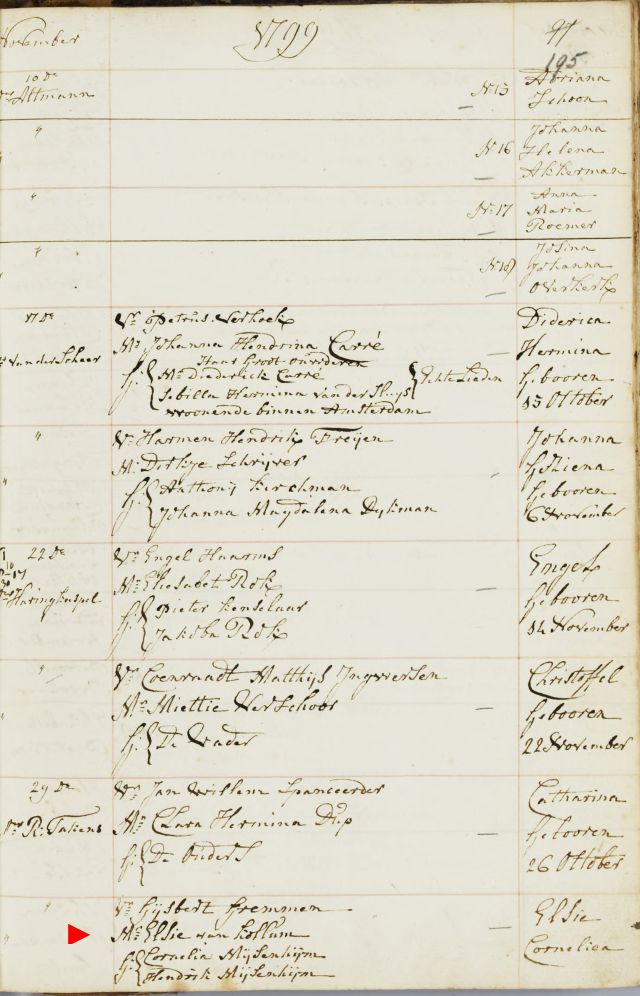 November
1799
97
195
10 De
Altmann
No 13
Adriana
Schoon
"
No 16
Johanna
Helena
Akkerman
"
No 17
Anna
Maria
Roemer
"
No 18
Josina
Johanna
Overkerk
17 De
van der Scheer
Vr Petrus Verhoek
Mr Johanna Hendrina Carré
Haar Groot-ouwderen
G: Mr Diederick Carré
Sebilla Hermina van der Sluys
Echte Lieden
woonende binnen Amsterdam
Diderica
Hermina
Gebooren
13 October
"
Vr Harmen Hendrik Freijen
Mr Dirkje Schrijver
G: Anthonij Kerckman
Johanna Magdalena Dykman
Johanna
Geziena
Gebooren
6 November
22 De
Haringhuspel
Vr Engel Haarms
Mr Eliesabet Rok
G: Pieter Kenselaar
Jakoba Rok
Engel
Gebooren
14 November
"
Vr Coenraadt Matthijs Ingwersen
Mr Miettie Verschoor
G: De Vader
Christoffel
Gebooren
22 November
29 De
Dr R: Takens
Vr Jan Willem Spanceerder
Mr Clara Hermina Diep
G: De Ouders
Catharina
Gebooren
26 October
"
Vr Gijsbert Gremmen
Mr Elsie van Kollum
G: Cornelia Mijsenheijm
Hendrik Mijsenheijm
Elsie
Cornelica